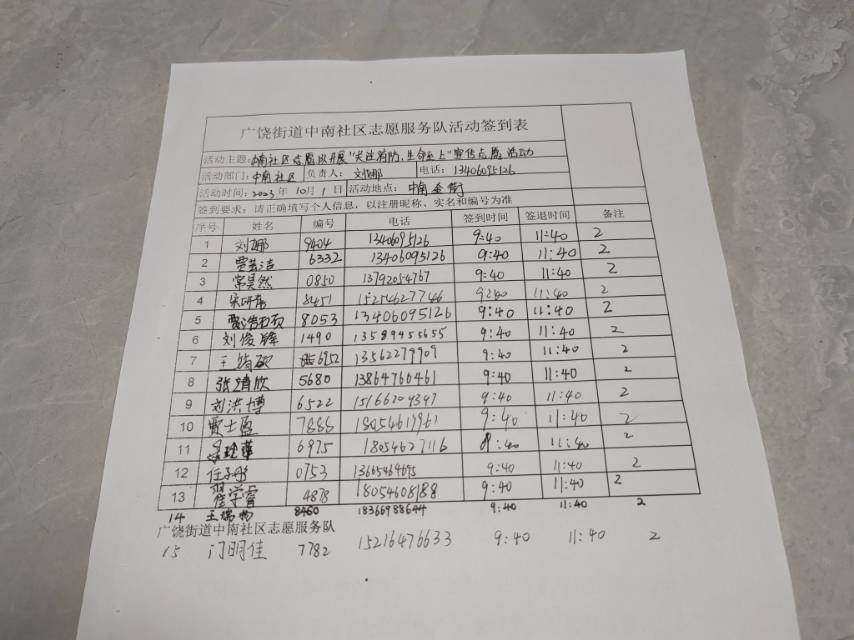 广饶街道中南社区志愿服务队活动签到表
活动主题：中南社区志愿队开展"关注消防，生命至上"宣传志愿活动
活动部门：中南社区 负责人：刘娜 电话：13406095126
活动时间：2023年10月1日 活动地点：中南金街
签到要求：请正确填写个人信息，以注册昵称、实名和编号为准
序号 姓名 编号 电话 签到时间 签退时间 备注
1 刘娜 9404 13406095126 9:40 11:40 2
2 6332 13406095126 9:40 11:40 2
3 常昊然 0850 13792054767 9:40 11:40 2
4 8451 15254627746 9:40 11:40 2
5 8053 13406095126 9:40 11:40 2
6 刘俊辉 1490 13589455655 9:40 11:40 2
7 6952 13562279909 9:40 11:40 2
8 张靖欣 5680 13864760461 9:40 11:40 2
9 刘洪博 6522 9:40 11:40 2
10 贾士盈 7888 9:40 11:40 2
11 6975 18054627116 9:40 11:40 2
12 任子彤 0753 13665464695 9:40 11:40 2
13 翟学睿 4878 18054608188 9:40 11:40 2
14 8460 18366988644 9:40 11:40 2
广饶街道中南社区志愿服务队
15 门明佳 7782 15216476633 9:40 11:40 2